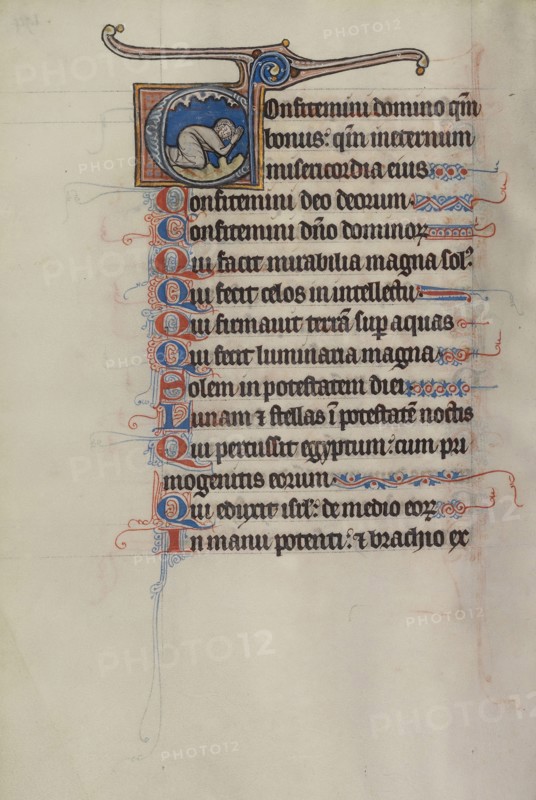 Confitemini domino qm̄
bonus: qm̄ ineternum
misericordia eius
Confitemini deo deorum
Confitemini dn̄o dominoꝝ
Qui facit mirabilia magna sol᷒
Qui fecit celos in intellectu
Qui firmauit terrā sup aquas
Qui fecit luminaria magna
Solem in potestatem diei
Lunam ⁊ stellas ī potestatē noctis
Qui percussit egyptum: cum pri
mogenitis eorum
Qui eduxit isrl: de medio eoꝝ
In manu potenti: ⁊ brachio ex
PHOTO12